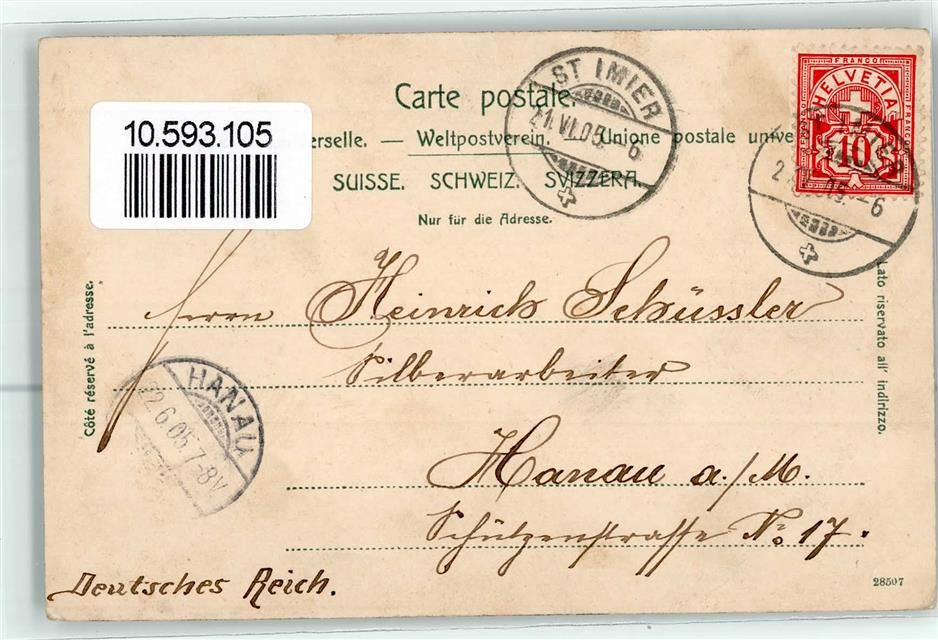 Carte postale.
10.593.105
erselle. — Weltpostverein. — Unione postale unive
SUISSE. SCHWEIZ. SVIZZERA.
Nur für die Adresse.
ST IMIER
21.VI.05.–6
FRANCO
HELVETIA
10
FRANCO
–6
Côté réservé à l'adresse.
Lato riservato all' indirizzo.
Herrn Heinrich Schüssler
Silberarbeiter
Hanau a/M.
Schützenstrasse No 17.
Deutsches Reich.
HANAU
22.6.05.7-8V
28507